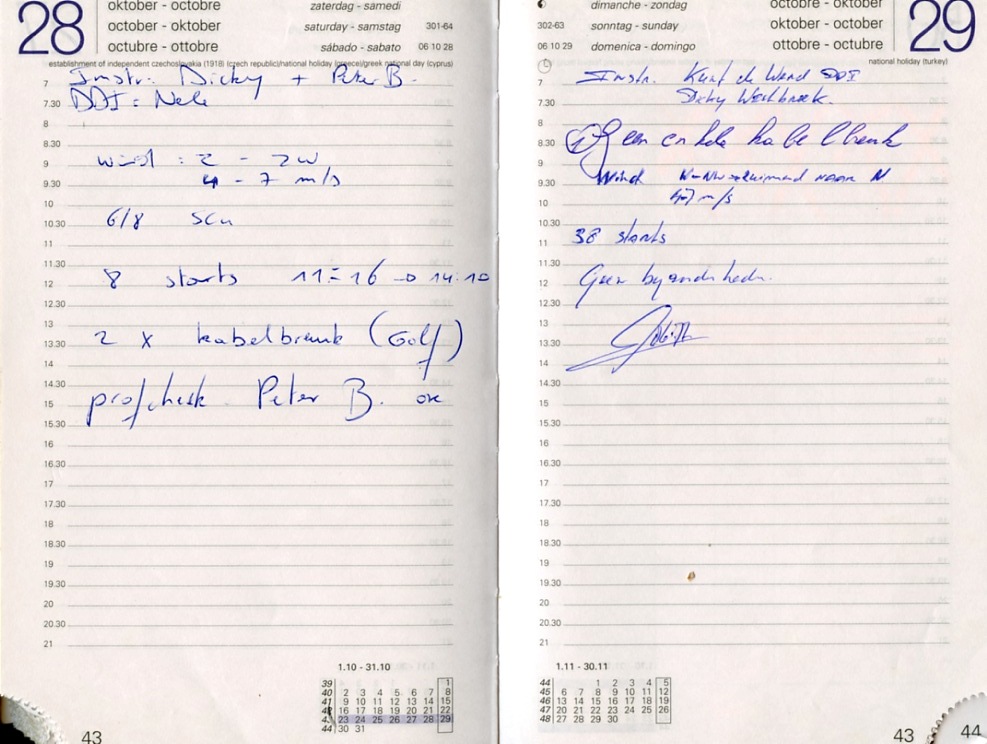 28
oktober - octobre
october - oktober
octubre - ottobre
zaterdag - samedi
saturday - samstag 301-64
sábado - sabato 06 10 28
establishment of independent czechoslovakia (1918) (czech republic)/national holiday (greece)/greek national day (cyprus)
7 Instr: Dicky + Peter B.
7.30 DDI: Nele
8
8.30
9 wind : Z - ZW
9.30 4 - 7 m/s
10
10.30 6/8 scu
11
11.30
12 8 starts 11:16 → 14:10
12.30
13
13.30 2 x kabelbreuk (Golf)
14
14.30
15 profcheck Peter B. ok
15.30
16
16.30
17
17.30
18
18.30
19
19.30
20
20.30
21
1.10 - 31.10
39 1
40 2 3 4 5 6 7 8
41 9 10 11 12 13 14 15
42 16 17 18 19 20 21 22
43 23 24 25 26 27 28 29
44 30 31
43
dimanche - zondag
302-63 sonntag - sunday
06 10 29 domenica - domingo
octobre - oktober
october - oktober
ottobre - octubre
29
national holiday (turkey)
7 Instr. Kurt de DDI
7.30 Dicky
8
8.30 Geen enkele kabelbreuk
9
9.30 Wind W-NW naar N
10 m/s
10.30
11 38 starts
11.30
12 Geen
12.30
13
13.30
14
14.30
15
15.30
16
16.30
17
17.30
18
18.30
19
19.30
20
20.30
21
1.11 - 30.11
44 1 2 3 4 5
45 6 7 8 9 10 11 12
46 13 14 15 16 17 18 19
47 20 21 22 23 24 25 26
48 27 28 29 30
43 44